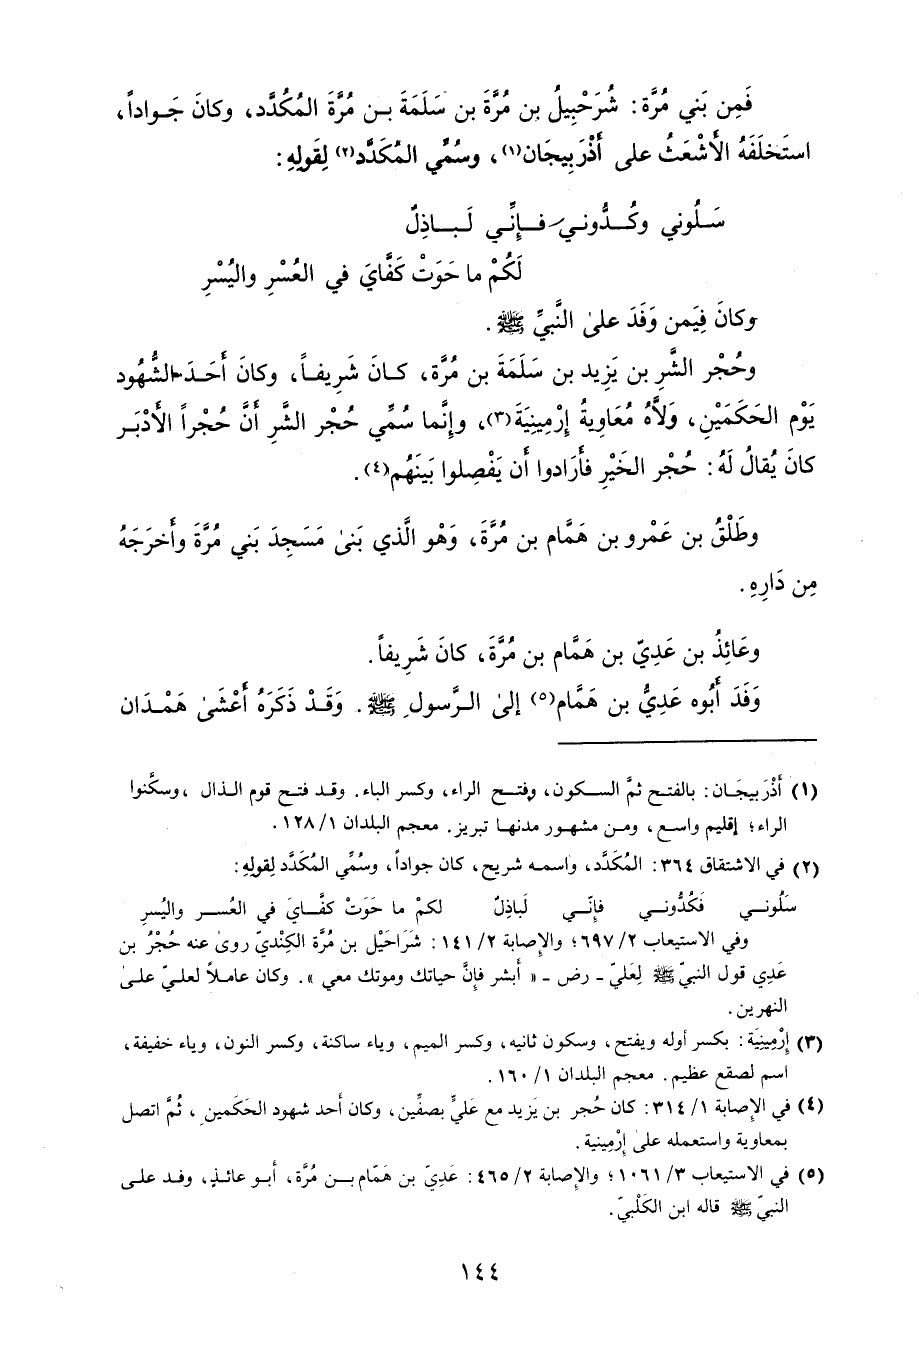 فَمِن بَني مُرَّة: شُرَحْبِيلُ بن مُرَّةَ بن سَلَمَةَ بـن مُرَّةَ المُكَدَّد، وكانَ جَـواداً،
استَخلَفَهُ الأَشْعَثُ على أَذْرَبِيجَان(١)، وسُمِّي المُكَدَّد(٢) لِقولِهِ:
سَـلُوني وكُـدُّونـي فـإنِّـي لَـبـاذِلٌ
لَكُمْ ما حَوَتْ كَفَّايَ في العُسْرِ واليُسْرِ
وكانَ فِيمن وَفَدَ علىٰ النَّبيِّ ﷺ.
وحُجْر الشَّر بن يَزِيد بن سَلَمَةَ بن مُرَّة، كـانَ شَرِيفـاً، وكانَ أَحَـدَ الشُّهُود
يَوْم الحَكَمَيْنِ، وَلاَّهُ مُعَاويةُ إِرْمِينِيَةَ(٣)، وإِنَّما سُمِّي حُجْر الشَّر أَنَّ حُجْراً الأَدْبَـر
كانَ يُقالُ لَهُ: حُجْر الخَيْرِ فأَرَادوا أَن يَفْصِلوا بَينَهُم(٤).
وطَلْقُ بن عَمْرو بن هَمَّام بن مُرَّةَ، وَهْو الَّذي بَنىٰ مَسَجِدَ بَني مُرَّةَ وأَخرَجَهُ
مِن دَارِهِ.
وعَائِذُ بن عَدِيّ بن هَمَّام بن مُرَّةَ، كانَ شَرِيفاً.
وَفَدَ أَبُوه عَدِيُّ بن هَمَّام(٥) إِلىٰ الـرَّسولِ ﷺ. وَقَـدْ ذَكَرَهُ أَعْشَىٰ هَمْـدَان
(١) أَذْرَبيجَـان: بالفتـح ثمَّ السـكون، وفتـح الراء، وكسر الباء. وقـد فتـح قوم الـذال، وسكَّنوا
الراء؛ إقليم واسع، ومـن مشهـور مدنهـا تبريز. معجم البلدان ١/١٢٨.
(٢) في الاشتقاق ٣٦٤: المُكَدَّد، واسمـه شريح، كان جواداً، وسُمِّي المُكَدَّد لِقولِهِ:
سَلُونـي فَكُدُّونـي فإنّـي لَباذِلٌ لَكمْ ما حَوَتْ كفَّـايَ في العُسـر واليُسرِ
وفي الاستيعاب ٢/٦٩٧؛ والإصابة ٢/١٤١: شَرَاحَيْل بن مُرَّة الكِنديّ روىٰ عنه حُجْرُ بن
عَدِي قول النبيّ ﷺ لِعَليّ ـ رض ـ «أبشر فإنَّ حياتك وموتك معي». وكان عامـلاً لعليّ علىٰ
النهرين.
(٣) إِرْمِينِيَة: بكسر أوله ويفتح، وسكون ثانيه، وكسر الميم، وياء ساكنة، وكسر النون، وياء خفيفة،
اسم لصقع عظيم. معجم البلدان ١/١٦٠.
(٤) في الإِصابة ١/٣١٤: كان حُجر بن يَزيد مع عليٍّ بصفِّين، وكان أحد شهود الحَكَمين، ثُمَّ اتصل
بمعاوية واستعمله علىٰ إِرْمِينية.
(٥) في الاستيعاب ٣/١٠٦١؛ والإصابة ٢/٤٦٥: عَدِيّ بن هَمّام بـن مُرَّة، أبـو عائـذٍ، وفـد علـى
النبيّ ﷺ قاله ابن الكَلْبيّ.
١٤٤